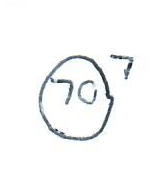 70 7